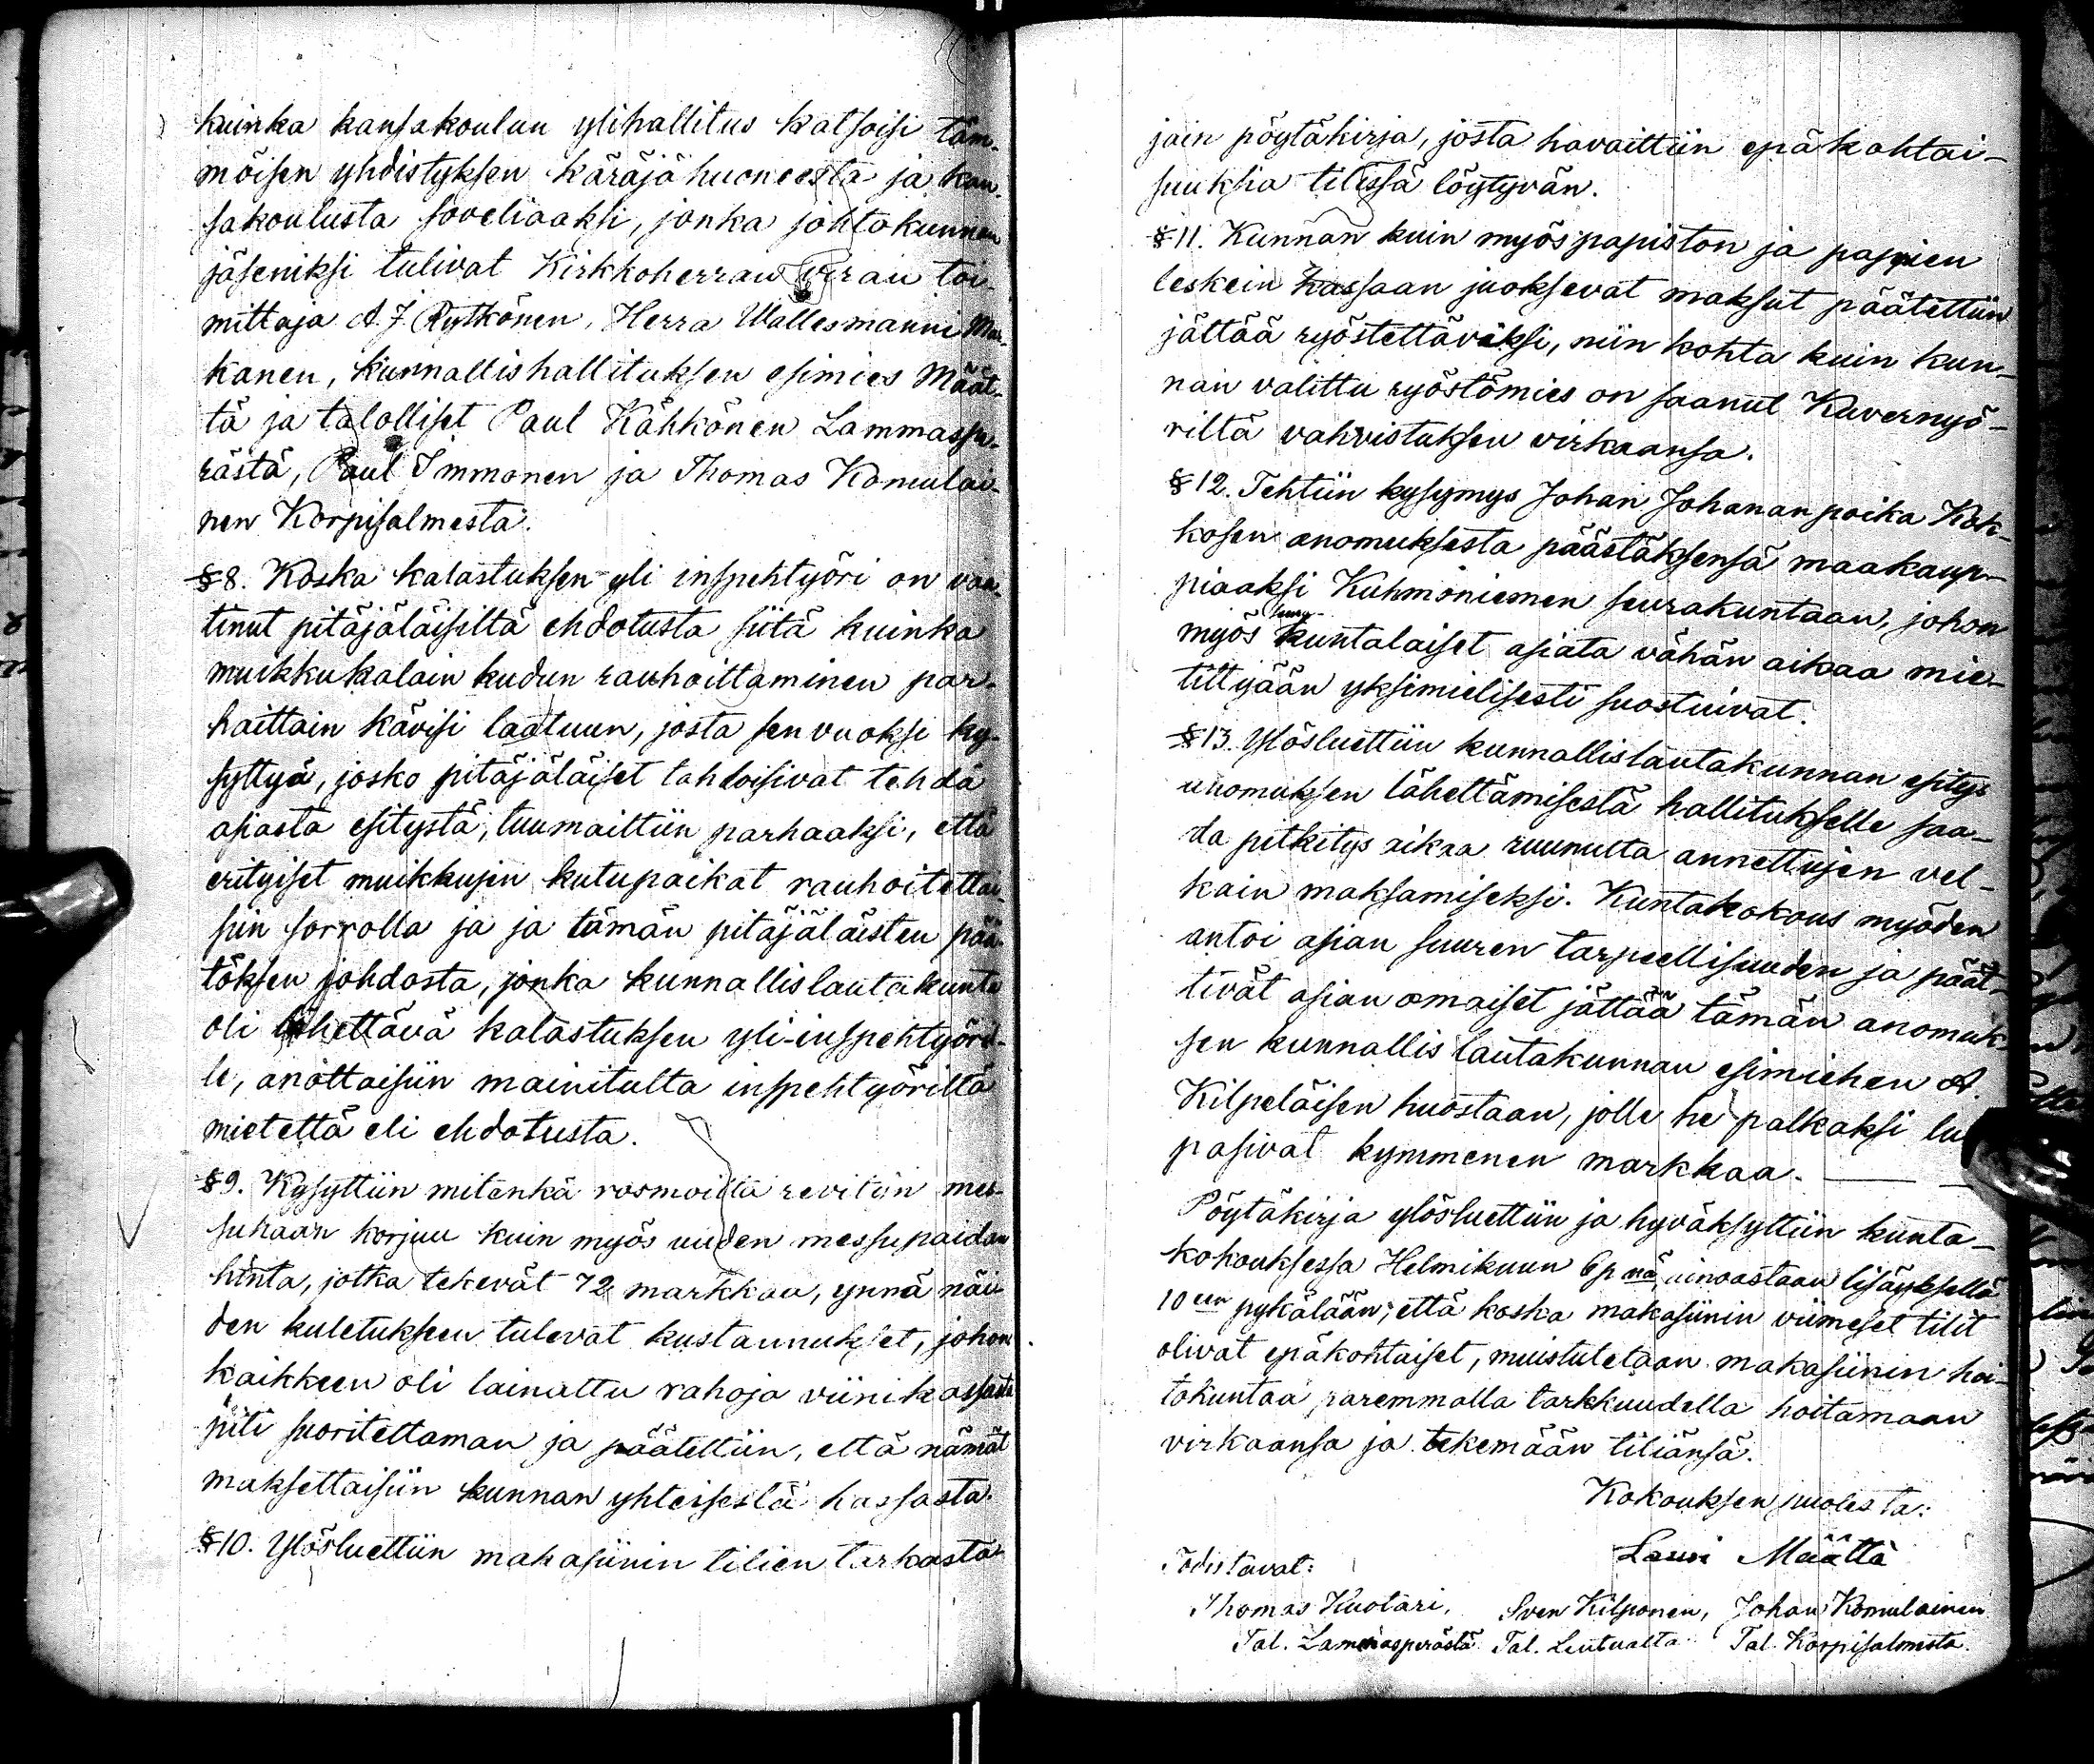 kuinka kansakoulun ylihallitus katsoisi täm-
möisen yhdistyksen käräjähuoneesta ja kan-
sakoulusta soveliaaksi, jonka johtokunnan
jäseniksi tulivat Kirkkoherran viran toi-
mittaja A. J. Rytkönen, Herra Wallesmanni Mus-
kanen, Kunnallishallituksen esimies Määt-
tä ja talolliset Paul Kähkönen Lammaspe-
rästä, Paul Immonen ja Thomas Komulai-
nen Korpisalmesta.
§ 8. Koska kalastuksen yli inspehtyöri on vaa-
tinut pitäjäläisiltä ehdotusta siitä kuinka
muikkukalain kudun rauhoittaminen par-
haittain kävisi laatuun, josta sen vuoksi ky-
syttyä, josko pitäjäläiset tahdoisivat tehdä
asiasta esitystä, tuumaittiin parhaaksi, että
erityiset muikkujen kutupaikat rauhoitettai-
siin sorrolla ja ja tämän pitäjäläisten pää-
töksen johdosta, jonka kunnallislautakunta
oli lähettävä kalastuksen yli-inspehtyöril-
le, anottaisiin mainitulta inspehtyöriltä
mietettä eli ehdotusta.
§ 9. Kysyttiin mitenkä rosmoilta revitiin mes-
suhaan korjuu kuin myös uuden messupaidan
hinta, jotka tekevät 72 markkaa, ynnä näi-
den kuletukseen tulevat kustannukset, johon
kaikkeen oli lainattu rahoja viinikassasta
piti suoritettaman ja päätettiin, että nämät
maksettaisiin kunnan yhteisestä kassasta.
§ 10. Ylösluettiin makasiinin tilien tarkasta-
jain pöytäkirja, josta havaittiin epäkohtai-
suuksia tilissä löytyvän.
§ 11. Kunnan kuin myös papiston ja pappien
leskein kassaan juoksevat maksut päätettiin
jättää ryöstettäväksi, niin kohta kuin kun-
nan valittu ryöstömies on saanut Kuvernyö-
riltä vahvistuksen virkaansa.
§ 12. Tehtiin kysymys Johan Johananpoika Kok-
kosen anomuksesta päästäksensä maakaup-
piaaksi Kuhmoniemen seurakuntaan, johon
myös seurakuntalaiset asiata vähän aikaa mie-
tittyään yksimielisesti suostuivat.
§ 13. Ylösluettiin kunnallislautakunnan esitys
anomuksen lähettämisestä hallitukselle saa-
da pitkitys aikaa ruunulta annettujen vel-
kain maksamiseksi. Kuntakokous myöden
antoi asian suuren tarpeellisuuden ja päät-
tivät asian omaiset jättää tämän anomuk-
sen kunnallis lautakunnan esimiehen A.
Kilpeläisen huostaan, jolle he palkaksi lu-
pasivat kymmenen markkaa.
Pöytäkirja ylösluettiin ja hyväksyttiin kunta-
kokouksessa Helmikuun 6 p nä, ainoastaan lisäyksellä
10 een pykälään; että koska makasiinin viimeset tilit
olivat epäkohtaiset, muistutetaan makasiinin hoi-
tokuntaa paremmalla tarkkuudella hoitamaan
virkaansa ja tekemään tiliänsä.
Kokouksen puolesta:
Lauri Määttä
Todistavat:
Thomas Huotari, Sven Kilponen, Johan Komulainen
Tal. Lammasperästä Tal. Lentualta Tal. Korpisalmesta.